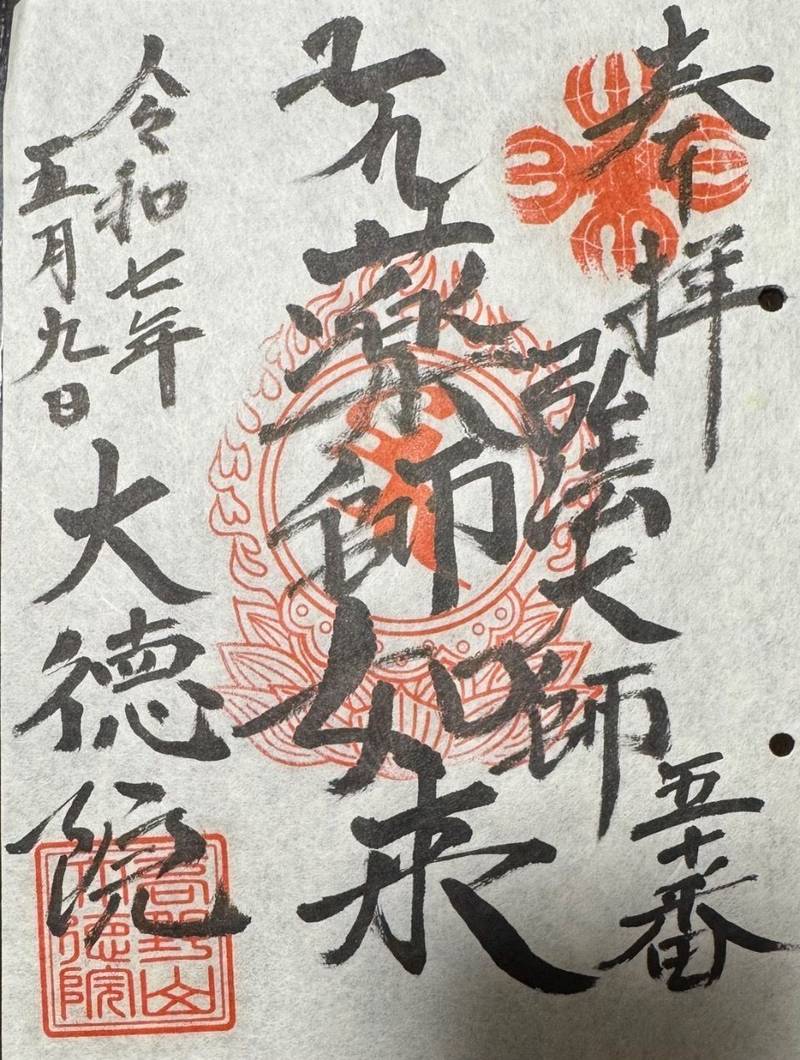 奉拝
弘法大師
五十番
薬師如来
令和七年
五月九日
大徳院
高野山
大徳院